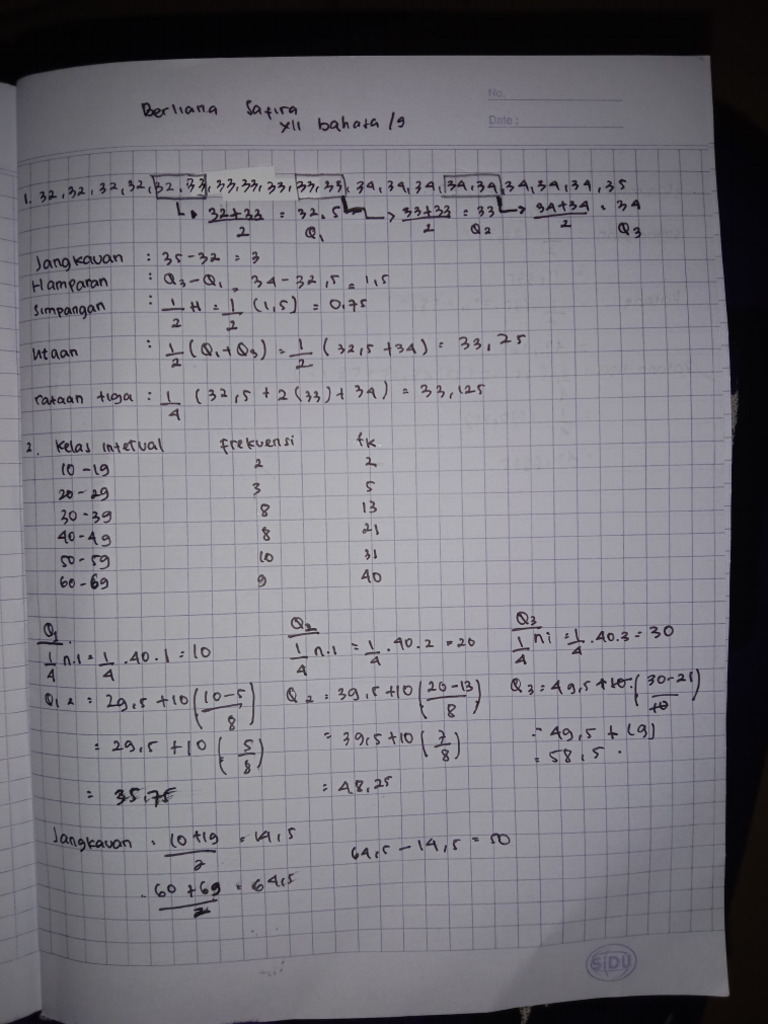 No.
Date :
Berliana Safira
XII bahasa /9
1. 32, 32, 32, 32, 32, 33, 33, 33, 33, 33, 33, 34, 34, 34, 34, 34, 34, 34, 34, 35
32+33/2 = 32,5 Q1 33+33/2 = 33 Q2 34+34/2 = 34 Q3
Jangkauan : 35-32 = 3
Hamparan : Q3-Q1 = 34-32,5 = 1,5
Simpangan : 1/2 H = 1/2 (1,5) = 0,75
utaan : 1/2 (Q1+Q3) = 1/2 (32,5 + 34) = 33,25
rataan tiga : 1/4 (32,5 + 2(33) + 34) = 33,125
2. Kelas interval frekuensi fk
10-19 2 2
20-29 3 5
30-39 8 13
40-49 8 21
50-59 10 31
60-69 9 40
Q1 Q2 Q3
1/4 n.1 = 1/4 .40.1 = 10 1/4 n.1 = 1/4 .40.2 = 20 1/4 ni = 1/4 .40.3 = 30
Q1 = 29,5 + 10 (10-5/8) Q2 = 39,5 + 10 (20-13/8) Q3 = 49,5 + 10 (30-21/10)
= 29,5 + 10 (5/8) = 39,5 + 10 (7/8) = 49,5 + (9)
= 35,75 = 48,25 = 58,5.
Jangkauan = 10+19/2 = 14,5 64,5 - 14,5 = 50
= 60+69/2 = 64,5
SiDU